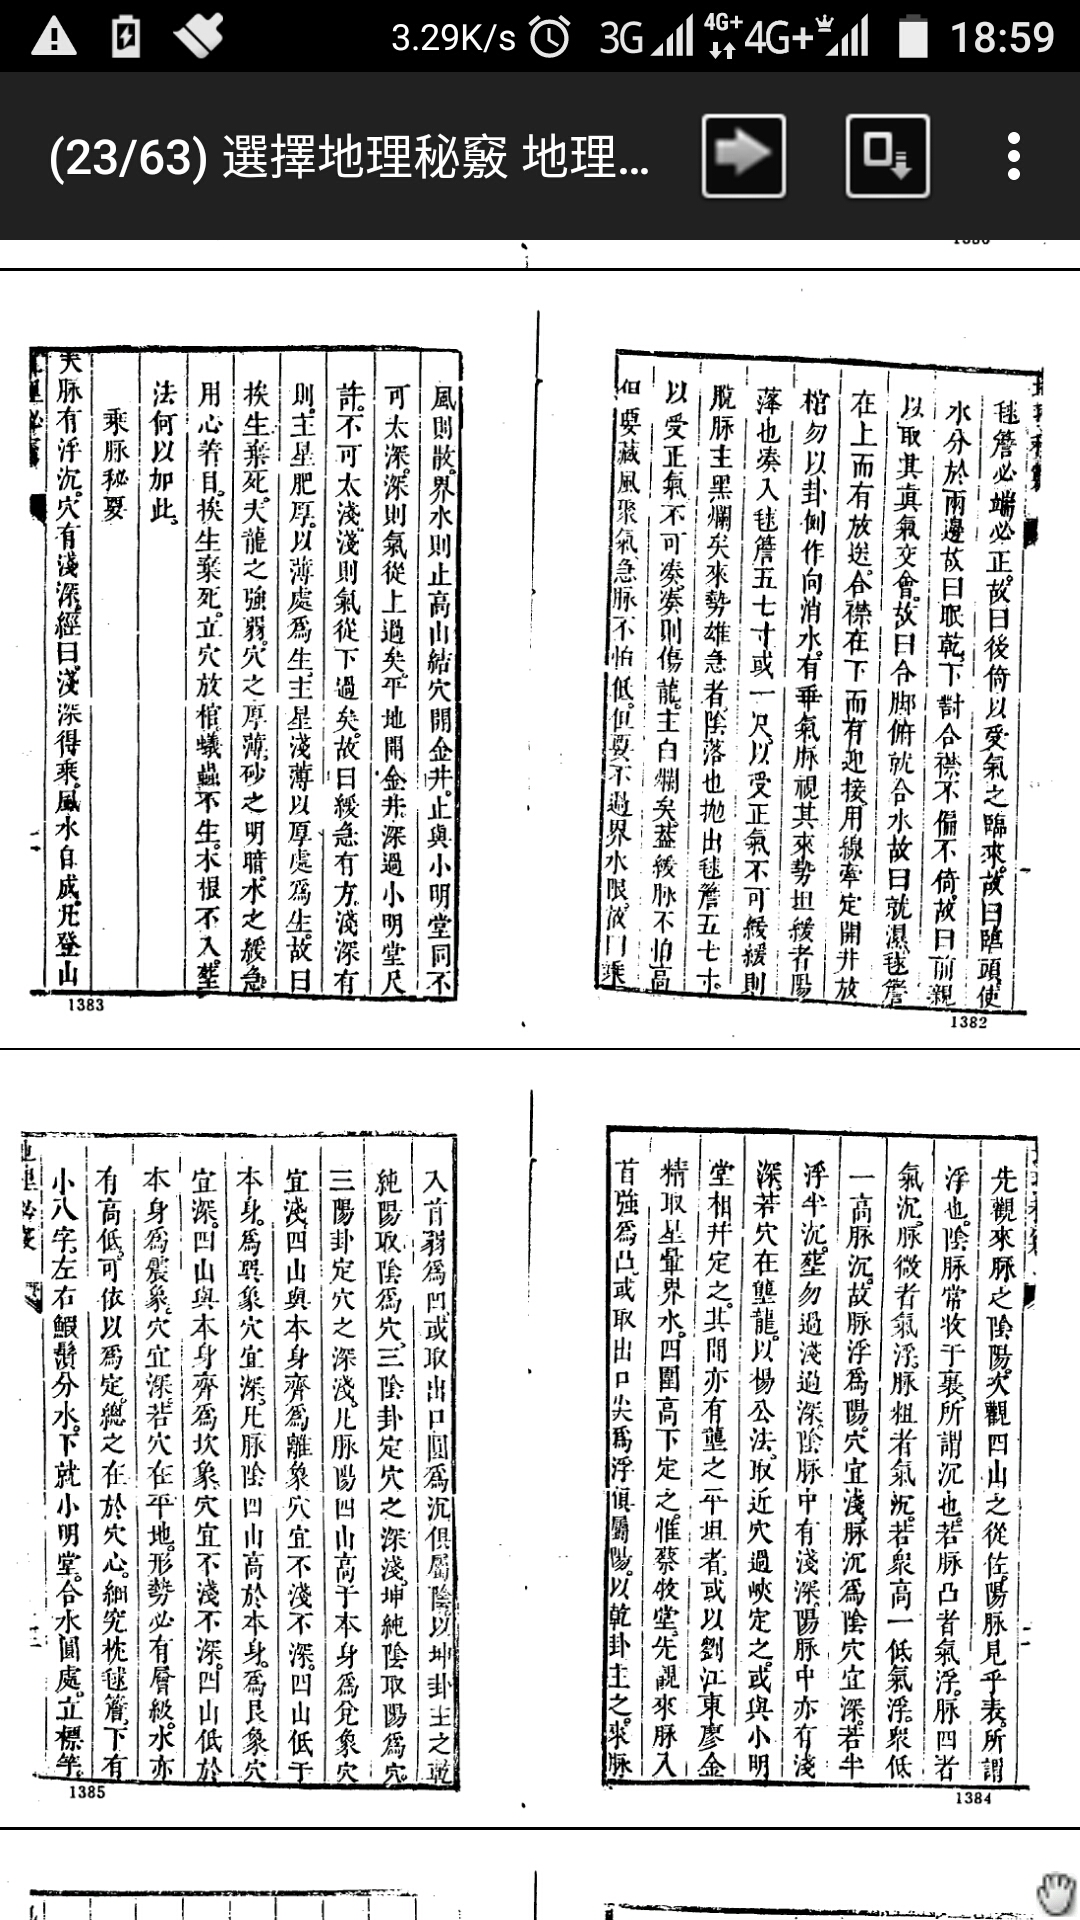 3.29K/s 3G 4G+ 4G+ 18:59
(23/63) 選擇地理秘竅 地理...
毬簷必端必正。故曰後倚以受氣之臨來。故曰臨頭。使
水分於兩邊故曰眠乾。下對合襟。不偏不倚。故曰前親
以取其真氣交會。故曰合脚俯就合水故曰就濕毬簷
在上而有放送。合襟在下而有迎接。用線牽定開井放
棺勿以卦例作向消水。有垂氣脉視其來勢坦緩者陽
落也湊入毬簷五七寸或一尺。以受正氣不可緩緩則
脫脉主黑爛矣來勢雄急者。陰落也拋出毬簷五七寸。
以受正氣。不可湊。湊則傷龍。主白爛矣。蓋緩脉不怕高
但要藏風聚氣急脉不怕低。但要不過界水限。故曰乘
1382
風則散。界水則止高山結穴開金井。止與小明堂同不
可太深。深則氣從上過矣。平地開金井。深過小明堂尺
許。不可太淺。淺則氣從下過矣。故曰緩急有方。淺深有
則。主星肥厚。以薄處爲生。主星淺薄以厚處爲生。故曰
挨生棄死。夫龍之強弱。穴之厚薄。砂之明暗。水之緩急。
用心着目。挨生棄死。立穴放棺。蟻蟲不生。木根不入。塟
法何以加此。
乘脉秘要
夫脉有浮沉。穴有淺深。經曰。淺深得乘。風水自成。凡登山
1383
先觀來脉之陰陽。次觀四山之從佐。陽脉見乎表。所謂
浮也。陰脉常收于裏。所謂沉也。若脉凸者氣浮。脉凹者
氣沉。脉微者氣浮。脉粗者氣沉。若衆高一低氣浮。衆低
一高脉沉。故脉浮爲陽。穴宜淺。脉沉爲陰穴宜深。若半
浮半沉。塟勿過淺過深。陰脉中有淺深。陽脉中亦有淺
深。若穴在壟龍。以楊公法。取近穴過峽定之。或與小明
堂相幷定之。其間亦有壟之平坦者。或以劉江東廖金
精取星暈界水。四圍高下定之。惟蔡牧堂。先觀來脉入
首強爲凸。或取出口尖爲浮。俱屬陽。以乾卦主之。來脉
1384
入首弱爲凹。或取出口圓爲沉。俱屬陰。以坤卦主之。乾
純陽取陰爲穴。三陰卦定穴之深淺。坤純陰取陽爲穴。
三陽卦定穴之深淺。凡脉陽四山高于本身爲兌象穴
宜淺。四山與本身齊爲離象穴宜不淺不深。四山低于
本身。爲巽象穴宜深。凡脉陰四山高於本身。爲艮象穴
宜深。四山與本身齊爲坎象。穴宜不淺不深。四山低於
本身爲震象。穴宜深。若穴在平地。形勢必有層級。水亦
有高低。可依以爲定。總之在於穴心。細究枕毬簷。下有
小八字。左右鰕鬚分水。下就小明堂。合水圓處。立標竿。
1385